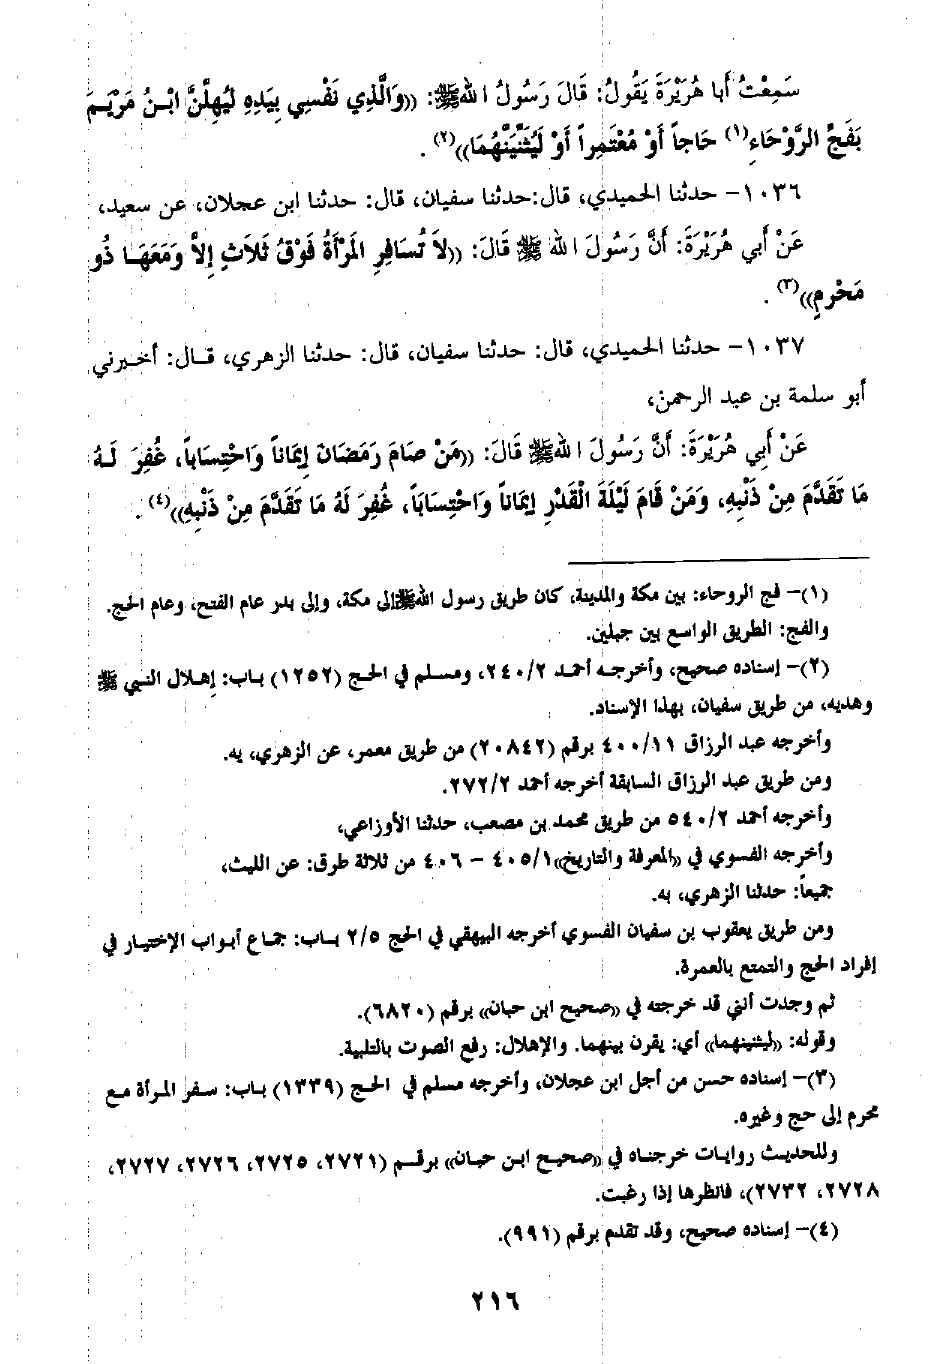 سَمِعْتُ أَبا هُرَيْرَةَ يَقُولُ: قَالَ رَسُولُ اللهﷺ: ((وَالَّذِي نَفْسِي بِيَدِهِ لَيُهِلَّنَّ ابْنُ مَرْيَمَ
بَفَجِّ الرَّوْحَاءِ(١) حَاجاً أَوْ مُعْتَمِراً أَوْ لَيُثَنِّيَنَّهُمَا))(٢) .
١٠٣٦- حدثنا الحميدي، قال:حدثنا سفيان، قال: حدثنا ابن عجلان، عن سعيد،
عَنْ أَبي هُرَيْرَةَ: أَنَّ رَسُولَ الله ﷺ قَالَ: ((لاَ تُسَافِرِ المَرْأَةُ فَوْقُ ثَلاَثٍ إِلاَّ وَمَعَهَا ذُو
مَحْرمٍ))(٣) .
١٠٣٧- حدثنا الحميدي، قال: حدثنا سفيان، قال: حدثنا الزهري، قال: أخبرني
أبو سلمة بن عبد الرحمن،
عَنْ أَبِي هُرَيْرَةَ: أَنَّ رَسُولَ اللهﷺ قَالَ: ((مَنْ صَامَ رَمَضَانَ إِيمَاناً وَاحْتِسَاباً، غُفِرَ لَهُ
مَا تَقَدَّمَ مِنْ ذَنْبِهِ، وَمَنْ قَامَ لَيْلَةَ الْقَدْرِ إِيمَاناً وَاحْتِسَابَاً، غُفِرَ لَهُ مَا تَقَدَّمَ مِنْ ذَنْبِهِ))(٤) .
(١)- فج الروحاء: بين مكة والمدينة، كان طريق رسول اللهﷺإلى مكة، وإلى بدر عام الفتح، وعام الحج.
والفج: الطريق الواسع بين جبلين.
(٢)- إسناده صحيح، وأخرجه أحمد ٢٤٠/٢، ومسلم في الحج (١٢٥٢) باب: إهلال النبي ﷺ
وهديه، من طريق سفيان، بهذا الإسناد.
وأخرجه عبد الرزاق ٤٠٠/١١ برقم (٢٠٨٤٢) من طريق معمر، عن الزهري، به.
ومن طريق عبد الرزاق السابقة أخرجه أحمد ٢٧٢/٢.
وأخرجه أحمد ٥٤٠/٢ من طريق محمد بن مصعب، حدثنا الأوزاعي،
وأخرجه الفسوي في ((المعرفة والتاريخ))٤٠٥/١ - ٤٠٦ من ثلاثة طرق: عن الليث،
جميعاً: حدثنا الزهري، به.
ومن طريق يعقوب بن سفيان الفسوي أخرجه البيهقي في الحج ٢/٥ باب: جماع أبواب الإختيار في
إفراد الحج والتمتع بالعمرة.
ثم وجدت أنني قد خرجته في ((صحيح ابن حبان)) برقم (٦٨٢٠).
وقوله: ((ليثنينهما)) أي: يقرن بينهما. والإهلال: رفع الصوت بالتلبية.
(٣)- إسناده حسن من أجل ابن عجلان، وأخرجه مسلم في الحج (١٣٣٩) باب: سفر المرأة مع
محرم إلى حج وغيره.
وللحديث روايات خرجناه في ((صحيح ابن حبان)) برقم (٢٧٢١، ٢٧٢٥، ٢٧٢٦، ٢٧٢٧،
٢٧٢٨، ٢٧٣٢)، فانظرها إذا رغبت.
(٤)- إسناده صحيح، وقد تقدم برقم (٩٩١).
٢١٦